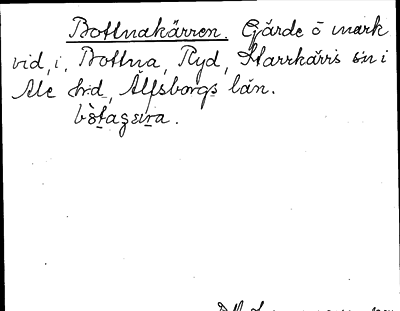 Bottnakärren. Gärde o mark
vid, i, Bottna, Ryd, Starrkärrs sn i
Ale hd, Älfsborgs län.